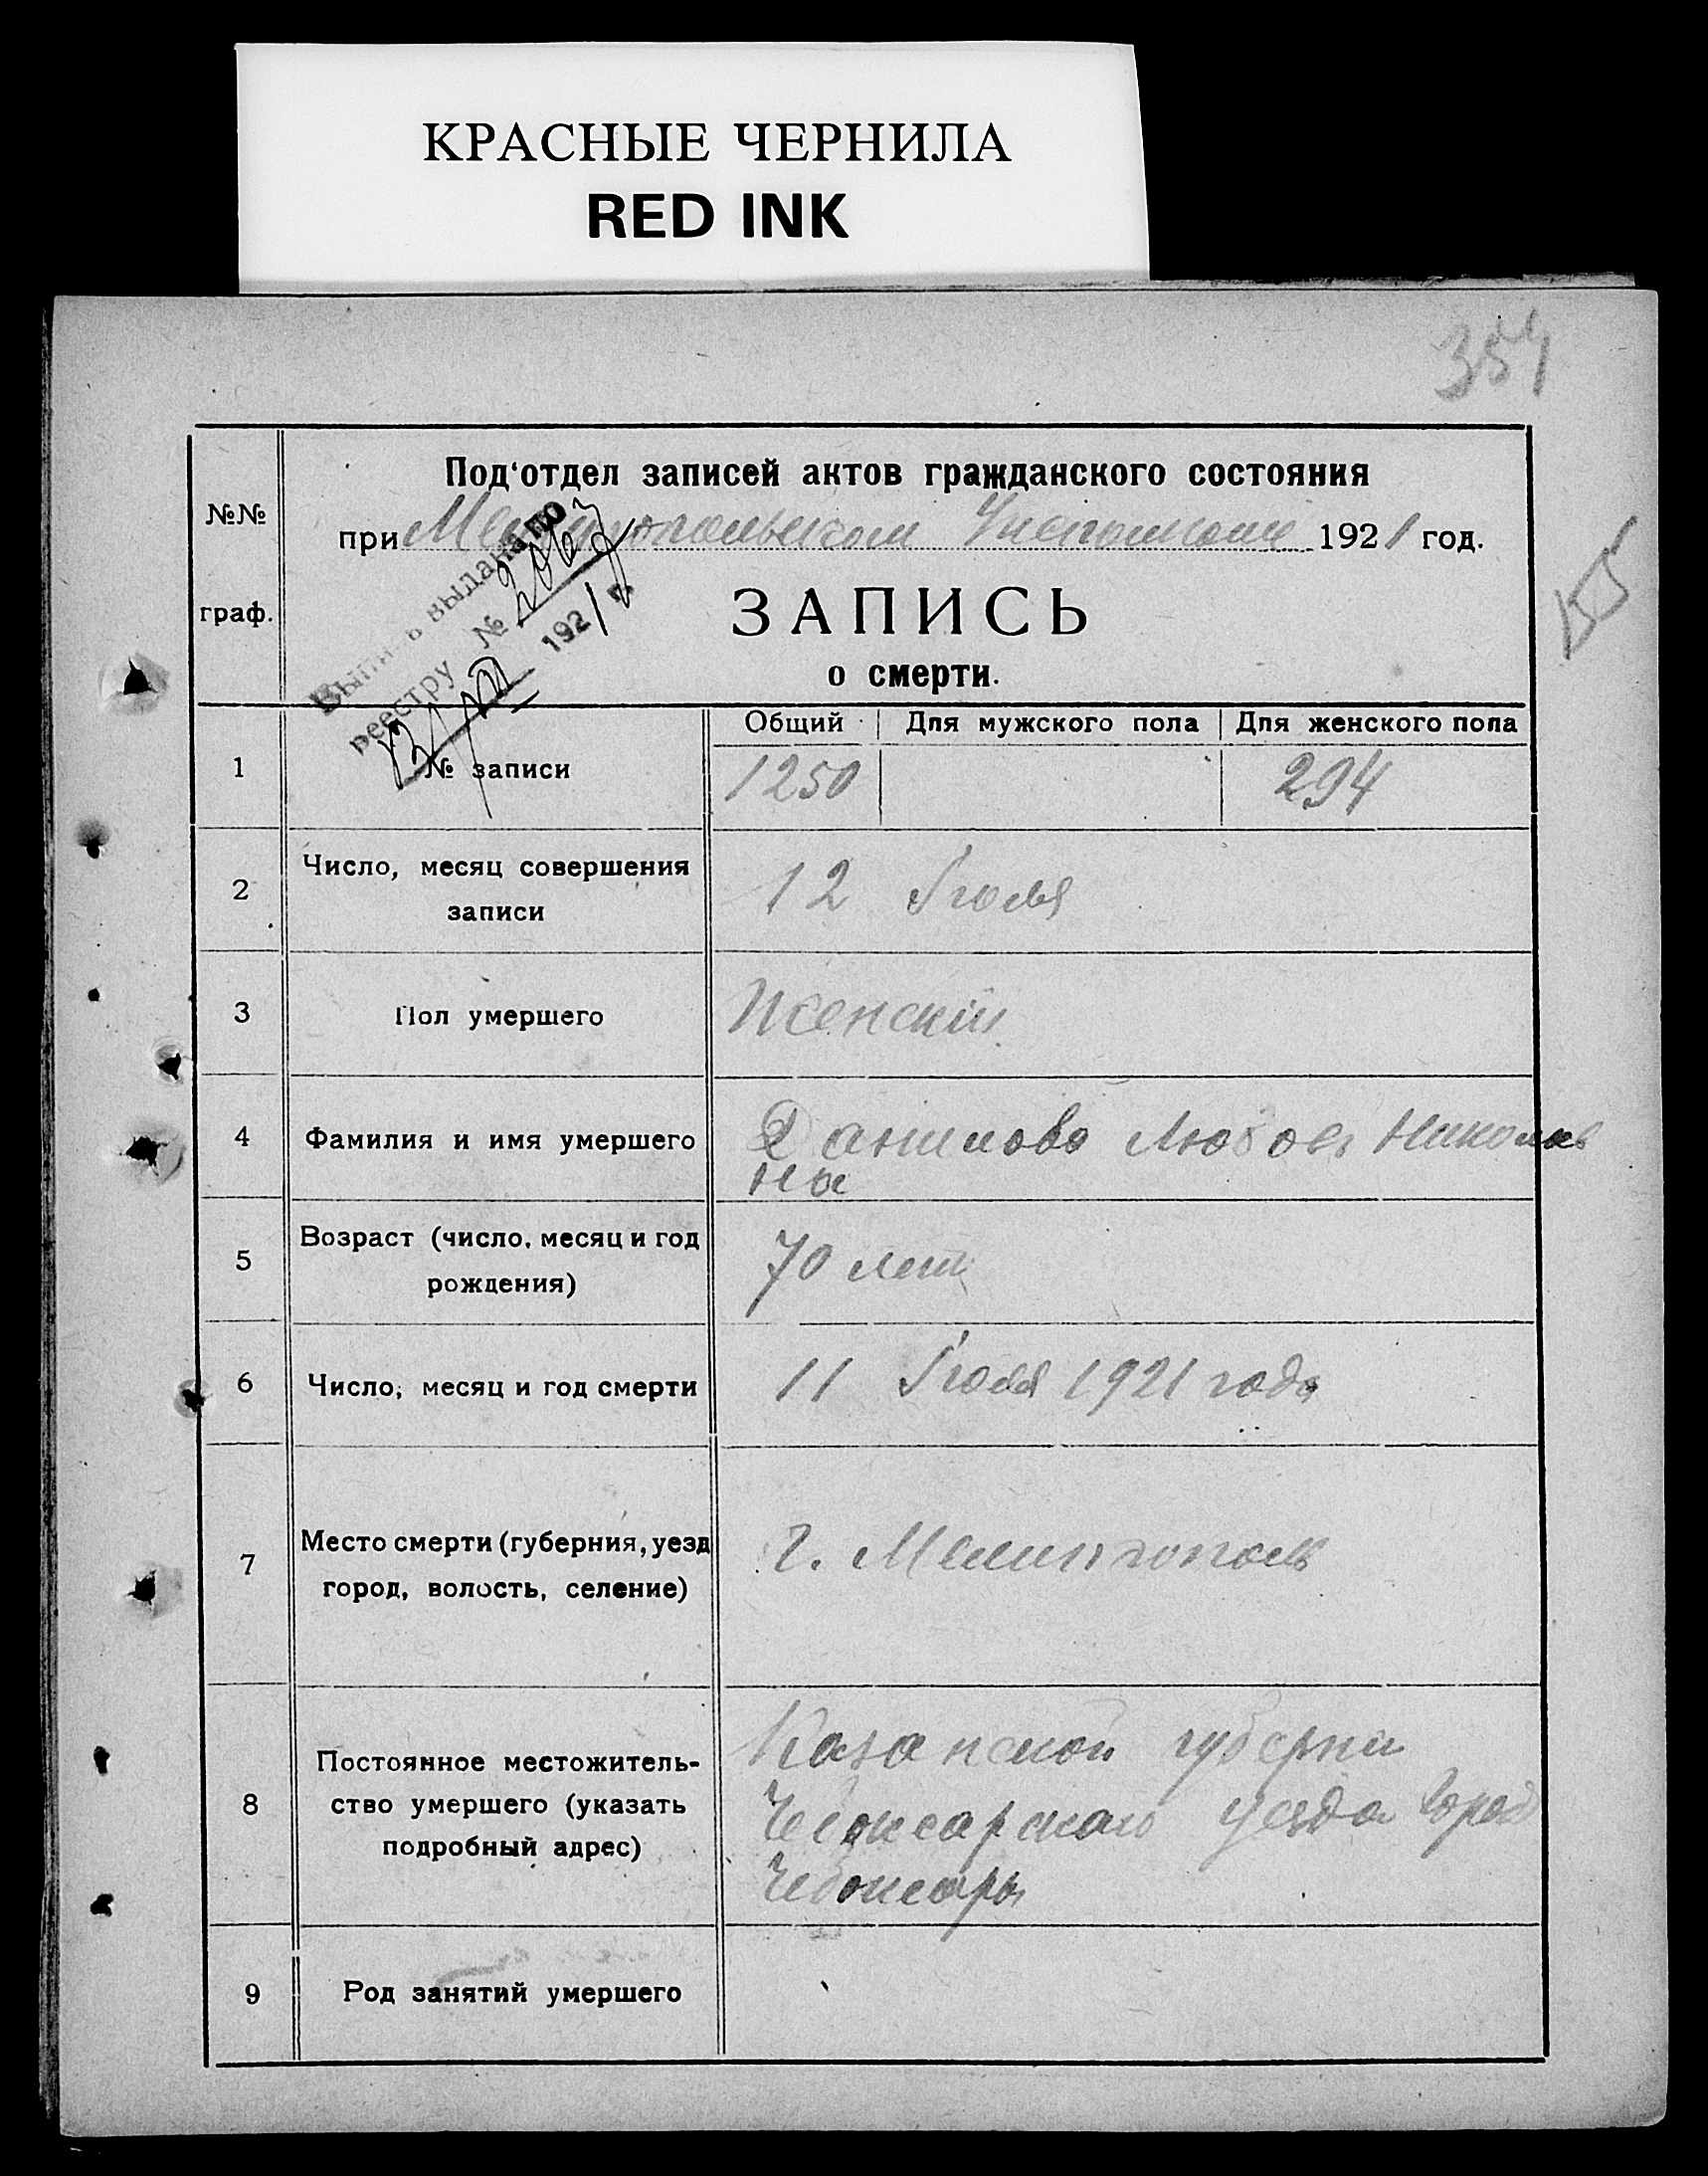 КРАСНЫЕ ЧЕРНИЛА
RED INK
354
Под'отдел записей актов гражданского состояния
№№
граф.
при Мелитопольском 1921 год.
ЗАПИСЬ
о смерти.
выдана по
реестру №
1921 г.
Общий | Для мужского пола | Для женского пола
1 № записи 1250 294
2 Число, месяц совершения
записи
12 Июля
3 Пол умершего Женский
4 Фамилия и имя умершего Данилова Любовь Николаев
на
5 Возраст (число, месяц и год
рождения)
70 лет
6 Число, месяц и год смерти 11 Июля 1921 года
7 Место смерти (губерния, уезд
город, волость, селение)
г. Мелитополь
8 Постоянное местожитель-
ство умершего (указать
подробный адрес)
Казанской губерни
Чебоксарского уезда город
Чебоксары
9 Род занятий умершего